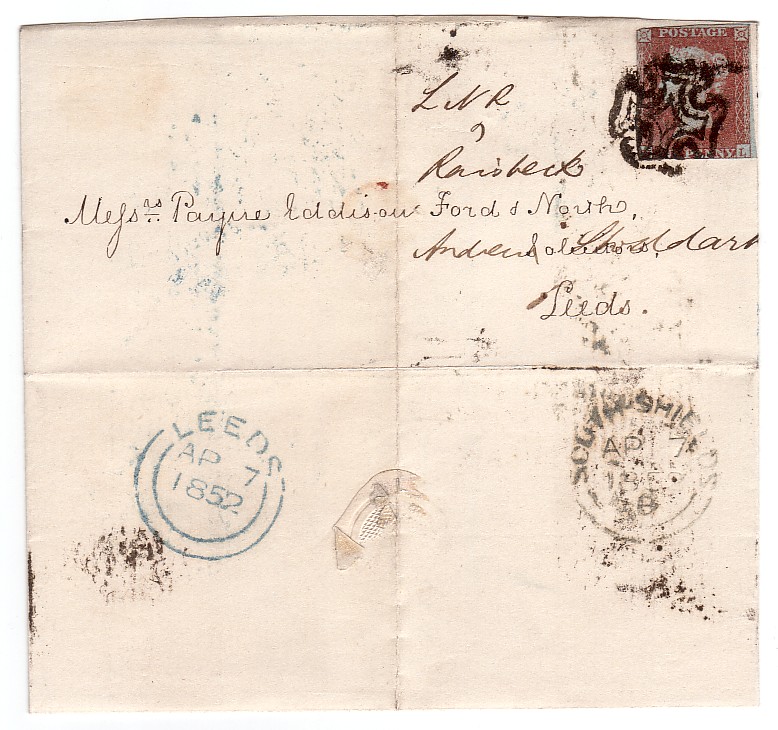 POSTAGE
L N R
v
Raisbeck
Messrs. Payne Eddison Ford & North,
Solicitors,
Stoddart
Leeds.
LEEDS
AP 7
1852
SOUTH SHIELDS
AP 7
1852
B